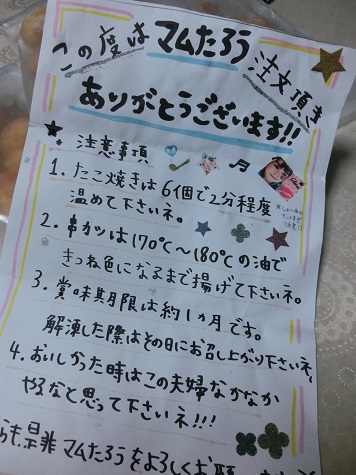 この度は マムたろう 注文頂き
ありがとうございます!!
★ 注意事項
1. たこ焼きは6個で2分程度
温めて下さいネ。
2. 串カツは170℃〜180℃の油で
きつね色になるまで揚げて下さいネ。
3. 賞味期限は約1ヵ月です。
解凍した際はその日にお召し上がり下さいネ。
4. おいしかった時はこの夫婦なかなか
やるなと思って下さいネ!!!
らも、是非 マムたろうをよろしくお願